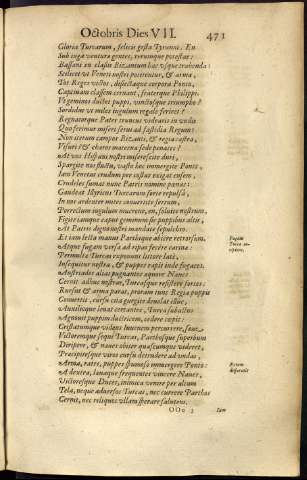 Octobris Dies VII. 471
Gloria Turcarum, felicis gesta Tyranni: En
Sub iuga ventura gentes, trernumque potestas:
Bassani en classis Bizantum huc vsque trahenda:
Scilicet vt Veneti nostri potirentur, & arma,
Tot Reges victos, desectaque corpora Ponto,
Captiuam classem cernant, fraterque Philippi.
Vt geminos duites puppi, vinctosque triumpho?
Sordidus vt miles ingulum regale feriret?
Regnatorque Pater truncus vidcatis in vndis
Quo ferimur miseri serui ad fastidia Regum?
Non iterum campos Bizanti, & regia castra,
Visuri? & charos matrona sede penates?
At vos Hispani nostri miserescite duri,
Spargite nos fluctu, vasto hoc immergite Ponto,
Iam Venetas crudum per castus exigat ensem,
Crudeles sumat nunc Patris nomine pœnas:
Gaudeat Illyricus Turcarum sorte repulsus.
In nos ardentes mites conuertite ferrum,
Porrectum ingulum mucrone, en, soluite nostrum,
Figite iamque caput gemmenti sic puppibus altis,
At Patrijs digna nostri mandate sepulchro.
Et iam lecta manus Parthique abiere retrorsum,
Atque fugam versa ad ripas fecere carina:
Permulta Turcas exponunt littore late,
Insequitur nostra, & puppes rapit inde fugaces.
Austriades alias pugnantes quærit Naues
Cernit adhuc nostras, Turcasque resistere fortes:
Rursus & arma parat, proram tunc Regia puppis
Conuertit, cursu cita gurgite deuolat illuc,
Auxilioque iuuat certantes, Turca subactos
Agnouit puppim ductricem, cedere cœpit:
Cristatumque videns Iuuenem percurrere, sæuæ
Victoremque sequi Turcas, Parthosque superbum
Diripere, & naues abiere quascumque videret,
Præcipitesque viros cursu detrudere ad vndas,
Arma, rates, puppes spumoso immergere Ponto:
A dextra, lauaque frequentes vincere Naues,
Victoresque Duces, inimica venere per altum
Tela, neque aduersos Turcas, nec currere Parthos
Cernit, nec reliquos vllam sperare salutem.
Fugam
Turcæ ar-
ripiunt,
OOo 2 Iam